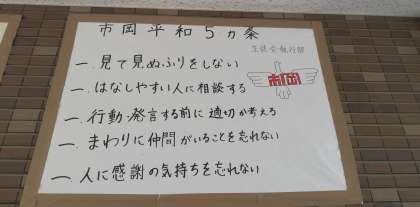 市岡平和5ヵ条
生徒会執行部
一、見て見ぬふりをしない
一、はなしやすい人に相談する
市岡
一、行動、発言する前に適切か考えろ
一、まわりに仲間がいることを忘れない
一、人に感謝の気持ちを忘れない